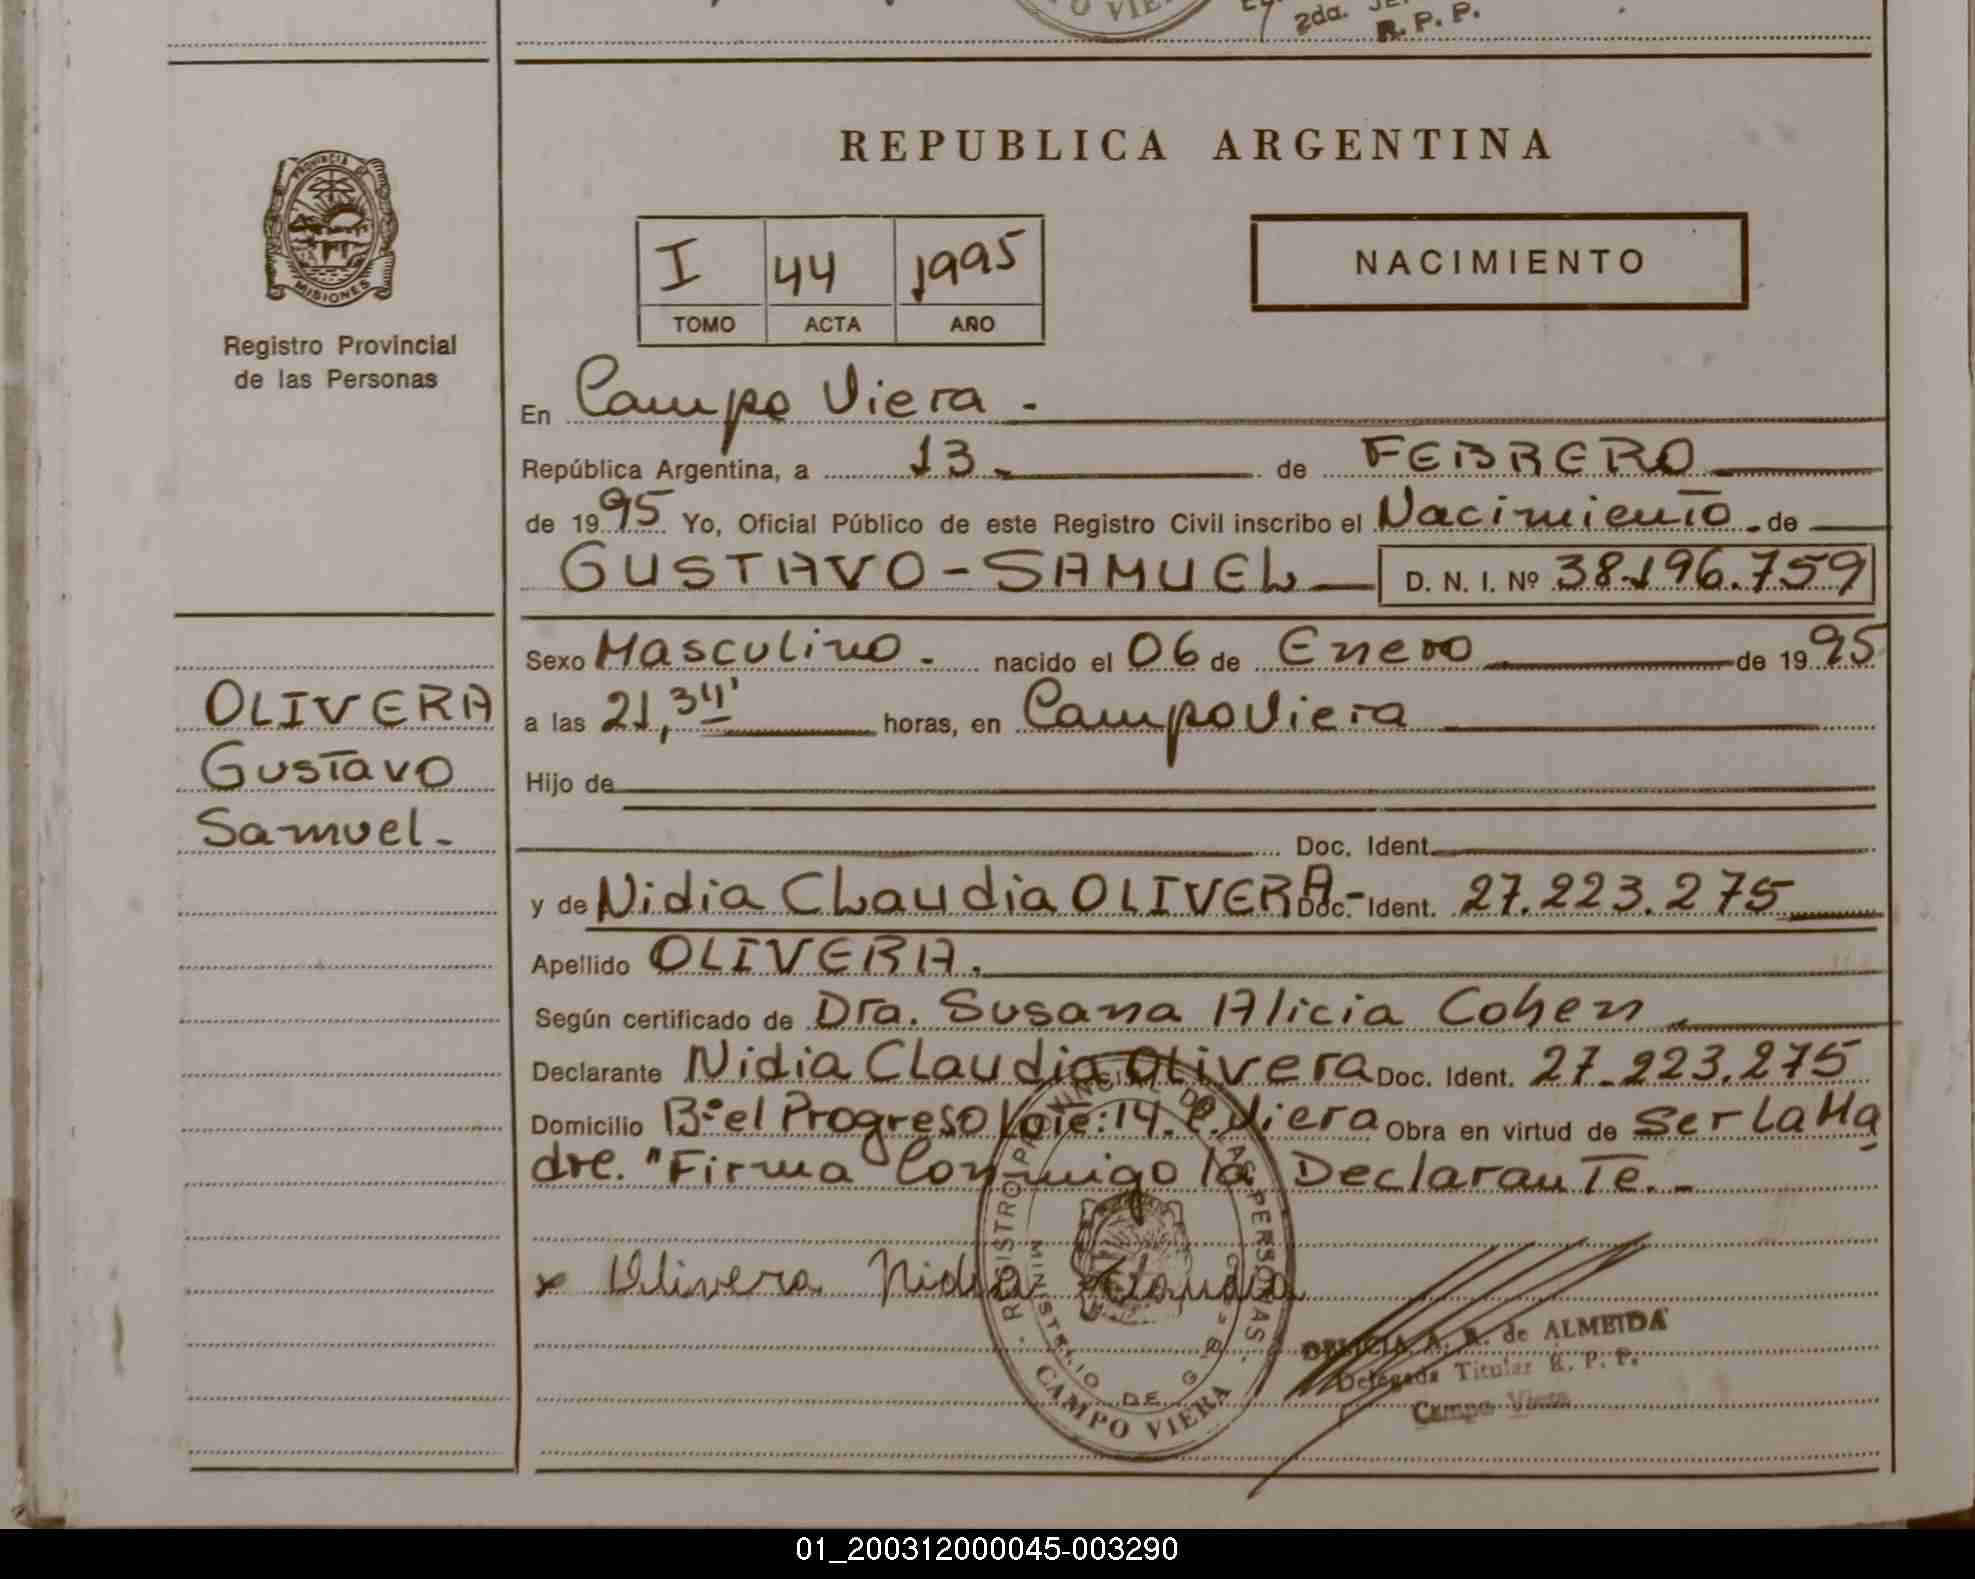 O VIE
2da.
R. P. P.
PROVINCIA
MISIONES
Registro Provincial
de las Personas
OLIVERA
Gustavo
Samuel.-
REPUBLICA ARGENTINA
I 44 1995
TOMO ACTA AÑO
NACIMIENTO
En Campo Viera.-
República Argentina, a 13.- de FEBRERO
de 1995 Yo, Oficial Público de este Registro Civil inscribo el Nacimiento.de
GUSTAVO-SAMUEL D. N. I. Nº 38.196.759
Sexo Masculino.- nacido el 06 de Enero de 1995
a las 21,34' horas, en Campo Viera
Hijo de
Doc. Ident.
y de Nidia Claudia OLIVERA- Doc. Ident. 27.223.275
Apellido OLIVERA.
Según certificado de Dra. Susana Alicia Cohen.
Declarante Nidia Claudia Olivera Doc. Ident. 27.223.275
Domicilio Bº el Progreso Lote:14.C.Viera Obra en virtud de Ser La Ma
dre. "Firma Conmigo la Declarante.-
x Olivera Nidia Claudia
REGISTRO PROVINCIAL DE LAS PERSONAS
MINISTERIO DE G
CAMPO VIERA
DELICIA A. R. de ALMEIDA
Delegada Titular R. P. P.
Campo Viera
01_200312000045-003290